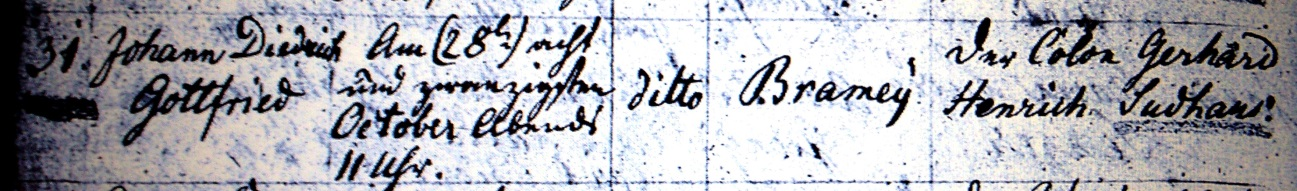 31. Johann Diedrich
Gottfried
Am (28t.) acht
und zwanzigsten
October Abends
11 Uhr.
ditto
Bramey
Der Colon Gerhard
Henrich Sudhaus.